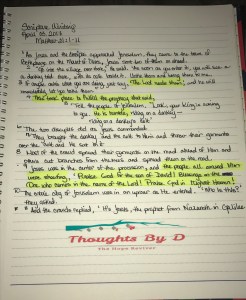 Scripture (Writing)
April 20, 2018
Matthew 21:1-11
As Jesus and the disciples approached Jerusalem, they came to the town of
Bethphage on the Mount of Olives, Jesus sent two of them on ahead.
"Go into the village over there," he said. "As soon as you enter it, you will see a
donkey tied there, with its colt beside it. Untie them and bring them to me.
If anyone asks what you are doing, just say, 'The Lord needs them,' and he will
immediately let you take them."
This took place to fulfill the prophecy that said,
"Tell the people of Jerusalem, 'Look, your King is coming
to you. He is humble, riding on a donkey-
riding on a donkey's colt.'"
The two disciples did as Jesus commanded.
They brought the donkey and the colt to him and threw their garments
over the colt, and he sat on it.
Most of the crowd spread their garments on the road ahead of him and
others cut branches from the trees and spread them on the road.
Jesus was in the center of the procession, and the people all around him
were shouting, "Praise God for the Son of David! Blessings on the
One who comes in the name of the Lord! Praise God in highest Heaven!"
The entire city of Jerusalem was in an uproar as He entered. "Who is this?"
they asked.
11 And the crowds replied, "It's Jesus, the prophet from Nazareth in Galilee."
Thoughts By D
The Hope Reviver